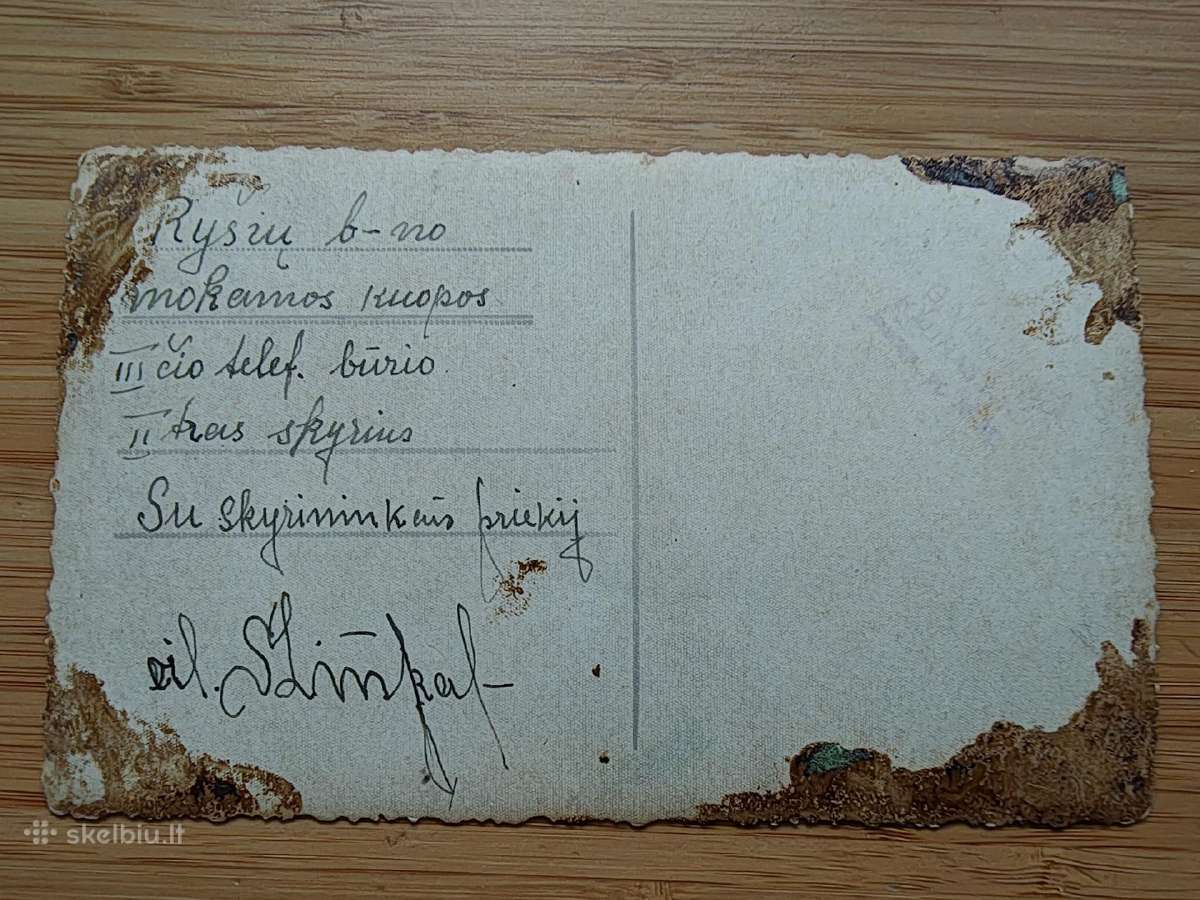 Ryšių b-no
mokamos kuopos
III čio telef. būrio
II tras skyrius
Su skyrininkais priekij
eil.
skelbiu.lt